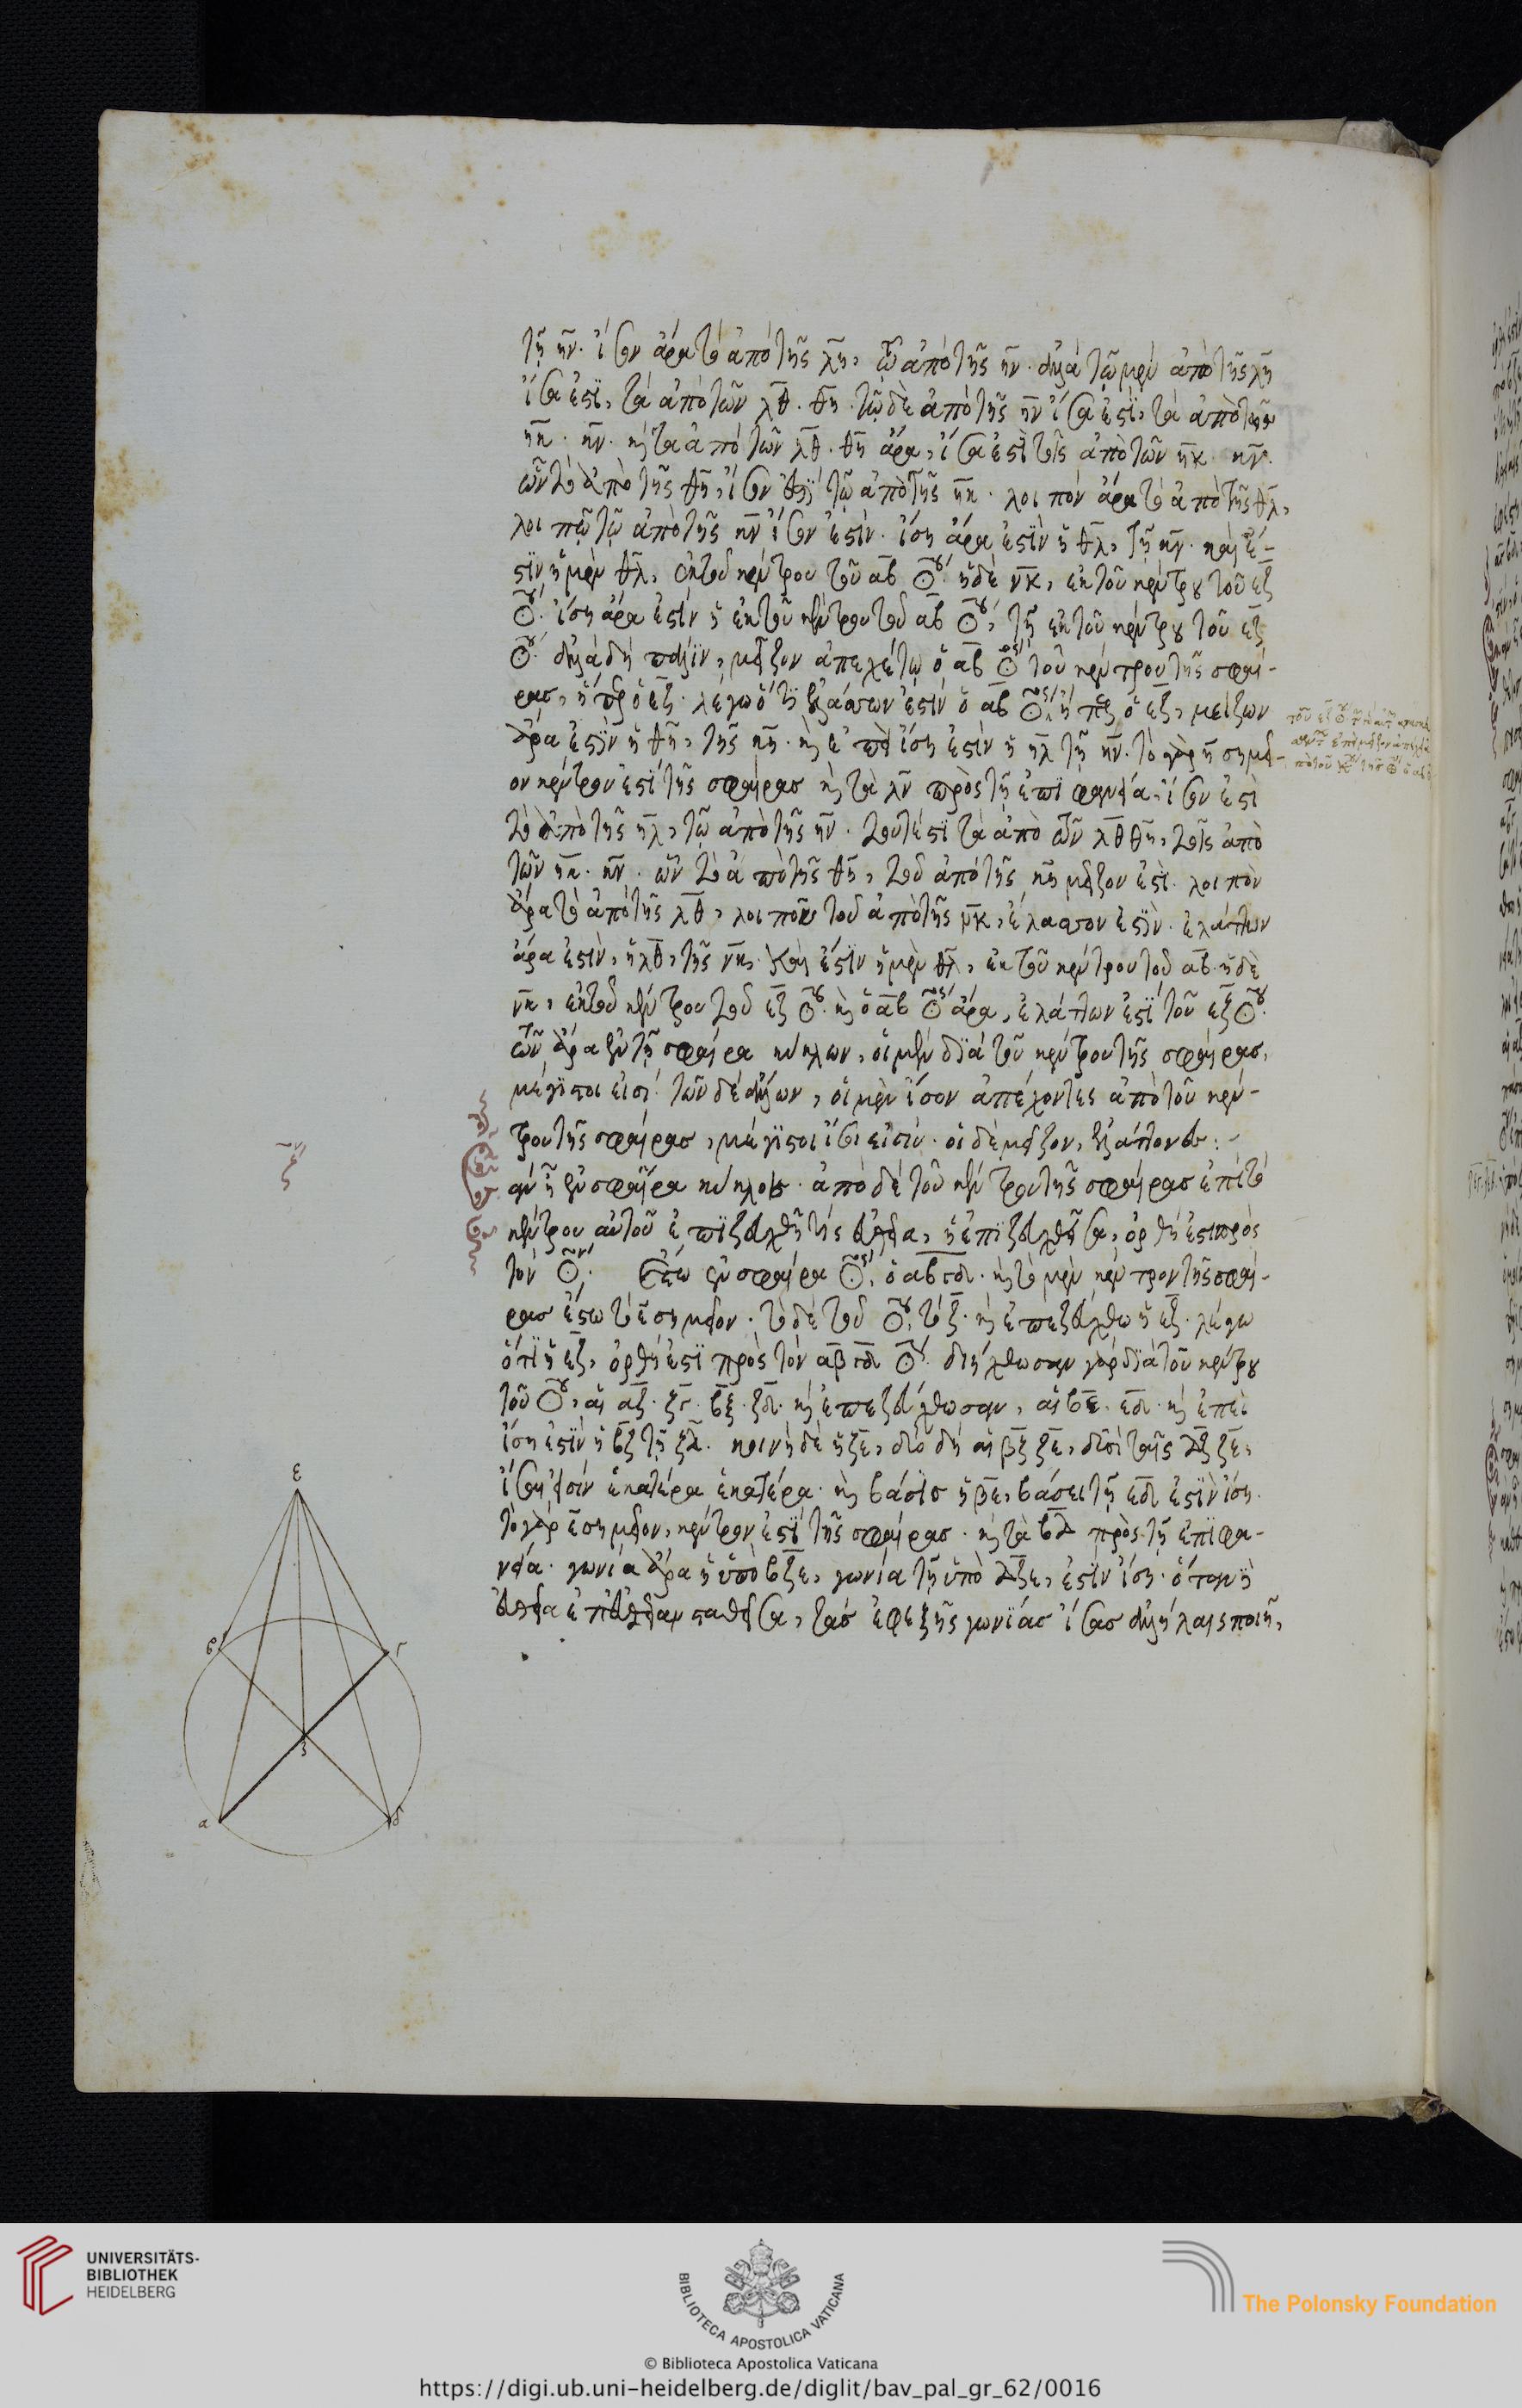 τῇ ην. ἴσον ἄρα τὸ ἀπὸ τῆς λη, τῶ ἀπὸ τῆς ην. ἀλλὰ τῶ μὲν ἀπὸ τῆς λη
ἴσα ἐστὶ, τὰ ἀπὸ τῶν λθ. θη. τῶ δὲ ἀπὸ τῆς ην ἴσα ἐστὶ, τὰ ἀπὸ τῶν
ηκ. κν. καὶ τὰ ἀπὸ τῶν λθ. θη ἄρα, ἴσα ἐστὶ τοῖς ἀπὸ τῶν ηκ. κν.
ὧν τὸ ἀπὸ τῆς θη, ἴσον ἐστὶ τῶ ἀπὸ τῆς ηκ. λοιπὸν ἄρα τὸ ἀπὸ τῆς θλ,
λοιπῶ τῶ ἀπὸ τῆς κν ἴσον ἐστὶν. ἴση ἄρα ἐστὶν ἡ θλ, τῇ κν. καὶ ἔ-
στιν ἡ μὲν θλ, ἐκ τοῦ κέντρου τοῦ αβ ☉ου. ἡ δὲ νκ, ἐκ τοῦ κέντρου τοῦ εζ
☉ου. ἴση ἄρα ἐστὶν ἡ ἐκ τοῦ κέντρου τοῦ αβ ☉ου, τῇ ἐκ τοῦ κέντρου τοῦ εζ
☉ου. ἀλλὰ δὴ πάλιν, μεῖζον ἀπεχέτω ὁ αβ ☉ος τοῦ κέντρου τῆς σφαί-
ρας, ἤπερ ὁ εζ. λέγω ὅτι ἐλάσσων ἐστὶν ὁ αβ ☉ος, ἤπερ ὁ εζ, μείζων
ἄρα ἐστὶν ἡ θη, τῆς κη. καὶ ἐπεὶ ἴση ἐστὶν ἡ ηλ τῇ ην. τὸ γὰρ η σημεῖ-
ον κέντρον ἐστὶ τῆς σφαίρας καὶ τὰ λν πρὸς τῇ ἐπιφανεία, ἴσον ἐστὶ
τὸ ἀπὸ τῆς ηλ, τῶ ἀπὸ τῆς ην. τουτέστι τὰ ἀπὸ τῶν λθ θη, τοῖς ἀπὸ
τῶν ηκ. κν. ὧν τὸ ἀπὸ τῆς θη, τοῦ ἀπὸ τῆς κη μεῖζον ἐστὶ. λοιπὸν
ἄρα τὸ ἀπὸ τῆς λθ, λοιποῦ τοῦ ἀπὸ τῆς νκ, ἔλασσον ἐστὶν. ἐλάττων
ἄρα ἐστὶν, ἡ λθ, τῆς νκ. καὶ ἔστιν ἡ μὲν θλ, ἐκ τοῦ κέντρου τοῦ αβ. ἡ δὲ
νκ, ἐκ τοῦ κέντρου τοῦ εζ ☉ου. καὶ ὁ αβ ☉ος ἄρα, ἐλάττων ἐστὶ τοῦ εζ ☉ου.
τῶν ἄρα ἐν τῇ σφαίρα κύκλων, οἱ μὲν διὰ τοῦ κέντρου τῆς σφαίρας,
μέγιστοι εἰσί. τῶν δὲ ἄλλων, οἱ μὲν ἴσον ἀπέχοντες ἀπὸ τοῦ κέν-
τρου τῆς σφαίρας, μέγιστοι ἴσοι εἰσίν. οἱ δὲ μεῖζον, ἐλάττονες:-
ζ
ἂν ᾖ ἐν σφαίρα κύκλος. ἀπὸ δὲ τοῦ κέντρου τῆς σφαίρας ἐπὶ τὸ
κέντρον αὐτοῦ ἐπιζευχθῇ τίς εὐθεῖα, ἡ ἐπιζευχθεῖσα, ὀρθή ἐστι πρὸς
τὸν ☉ον. Ἔστω ἐν σφαίρα ☉ος, ὁ αβγδ. καὶ τὸ μὲν κέντρον τῆς σφαί-
ρας ἔστω τὸ ε σημεῖον. τὸ δὲ τοῦ ☉ου, τὸ ζ. καὶ ἐπεζεύχθω ἡ εζ. λέγω
ὅτι ἡ εζ, ὀρθή ἐστι πρὸς τὸν αβγδ ☉ον. διήχθωσαν γὰρ διὰ τοῦ κέντρου
τοῦ ☉ου, αἱ αζ. ζγ. βζ. ζδ. καὶ ἐπεζεύχθωσαν, αἱ βε. εδ. καὶ ἐπεὶ
ἴση ἐστὶν ἡ βζ τῇ ζδ. κοινὴ δὲ ἡ ζε, δύο δὴ αἱ βζ ζε, δυσὶ ταῖς δζ ζε,
ἴσαι εἰσὶν ἑκατέρα ἑκατέρα. καὶ βάσις ἡ βε, βάσει τῇ εδ ἐστὶν ἴση.
τὸ γὰρ ε σημεῖον, κέντρον ἐστὶ τῆς σφαίρας. καὶ τὰ βδ πρὸς τῇ ἐπιφα-
νεία. γωνία ἄρα ἡ ὑπὸ βζε, γωνία τῇ ὑπὸ δζε, ἐστὶν ἴση. ὅταν δὲ
εὐθεῖα ἐπ᾽ εὐθεῖαν σταθεῖσα, τὰς ἐφεξῆς γωνίας ἴσας ἀλλήλαις ποιῇ,
ε
β γ
ζ
α δ
UNIVERSITÄTS-
BIBLIOTHEK
HEIDELBERG
BIBLIOTECA APOSTOLICA VATICANA
The Polonsky Foundation
© Biblioteca Apostolica Vaticana
https://digi.ub.uni-heidelberg.de/diglit/bav_pal_gr_62/0016